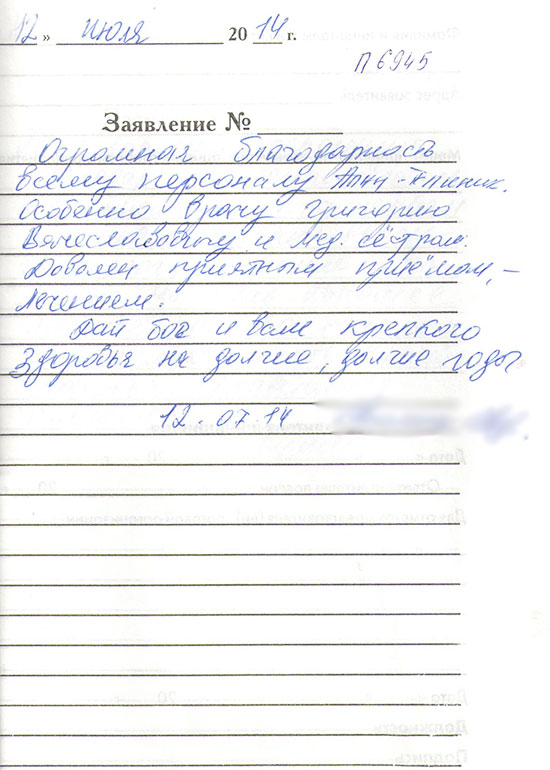 12 » июля 2014 г.
П6945
Заявление №
Огромная благодарность
всему персоналу Алан-Клиник.
Особенно врачу Григорию
Вячеславовичу и мед. сёстрам.
Доволен приятным приёмом, -
лечением.
Дай бог и вам крепкого
здоровья на долгие, долгие годы
12.07.14